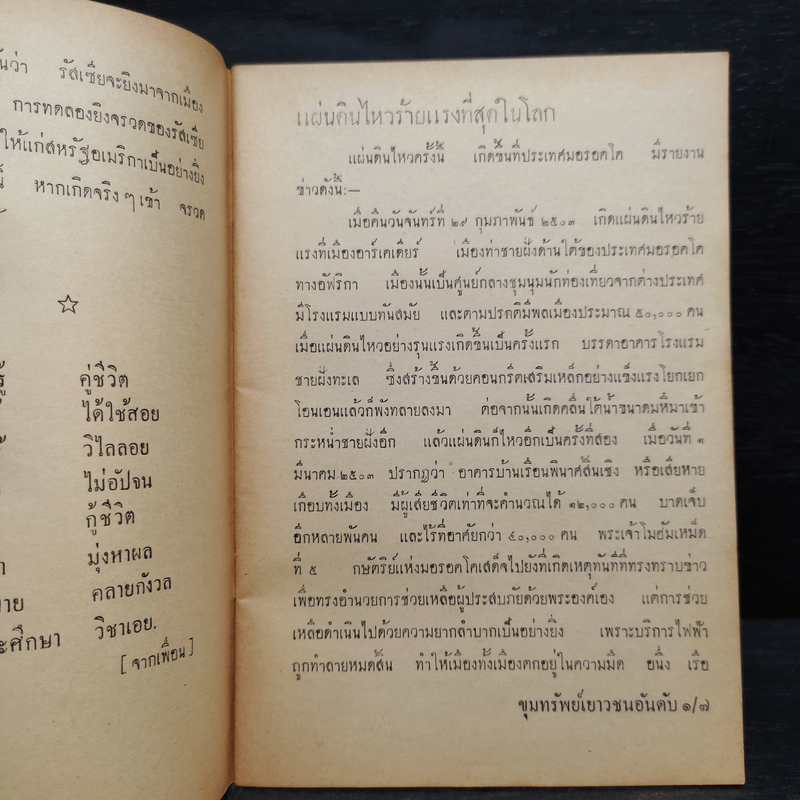 นว่า รัสเซียจะยิงมาจากเมือง
การทดลองยิงจรวดของรัสเซีย
ให้แก่สหรัฐอเมริกาเป็นอย่างยิ่ง
หากเกิดจริง ๆ เข้า จรวด
คู่ชีวิต
ได้ใช้สอย
วิไลลอย
ไม่อัปจน
กู้ชีวิต
มุ่งหาผล
คลายกังวล
ะศึกษา วิชาเอย.
[ จากเพื่อน ]
แผ่นดินไหวร้ายแรงที่สุดในโลก
แผ่นดินไหวครั้งนี้ เกิดขึ้นที่ประเทศมอรอคโค มีรายงาน
ข่าวดังนี้:—
เมื่อคืนวันจันทร์ที่ ๒๙ กุมภาพันธ์ ๒๕๐๓ เกิดแผ่นดินไหวร้าย
แรงที่เมืองอาร์เคเดียร์ เมืองท่าชายฝั่งด้านใต้ของประเทศมอรอคโค
ทางอัฟริกา เมืองนั้นเป็นศูนย์กลางชุมนุมนักท่องเที่ยวจากต่างประเทศ
มีโรงแรมแบบทันสมัย และตามปรกติมีพลเมืองประมาณ ๕๐,๐๐๐ คน
เมื่อแผ่นดินไหวอย่างรุนแรงเกิดขึ้นเป็นครั้งแรก บรรดาอาคารโรงแรม
ชายฝั่งทะเล ซึ่งสร้างขึ้นด้วยคอนกรีตเสริมเหล็กอย่างแข็งแรงโยกเยก
โอนเอนแล้วก็พังทลายลงมา ต่อจากนั้นเกิดคลื่นใต้น้ำขนาดมหึมาเข้า
กระหน่ำชายฝั่งอีก แล้วแผ่นดินก็ไหวอีกเป็นครั้งที่สอง เมื่อวันที่ ๑
มีนาคม ๒๕๐๓ ปรากฏว่า อาคารบ้านเรือนพินาศสิ้นเชิง หรือเสียหาย
เกือบทั้งเมือง มีผู้เสียชีวิตเท่าที่จะคำนวณได้ ๑๒,๐๐๐ คน บาดเจ็บ
อีกหลายพันคน และไร้ที่อาศัยกว่า ๔๐,๐๐๐ คน พระเจ้าโมฮัมเหม็ด
ที่ ๕ กษัตริย์แห่งมอรอคโคเสด็จไปยังที่เกิดเหตุทันทีที่ทรงทราบข่าว
เพื่อทรงอำนวยการช่วยเหลือผู้ประสบภัยด้วยพระองค์เอง แต่การช่วย
เหลือดำเนินไปด้วยความยากลำบากเป็นอย่างยิ่ง เพราะบริการไฟฟ้า
ถูกทำลายหมดสิ้น ทำให้เมืองทั้งเมืองตกอยู่ในความมืด อนึ่ง เรือ
ขุมทรัพย์เยาวชนอันดับ ๑/๗